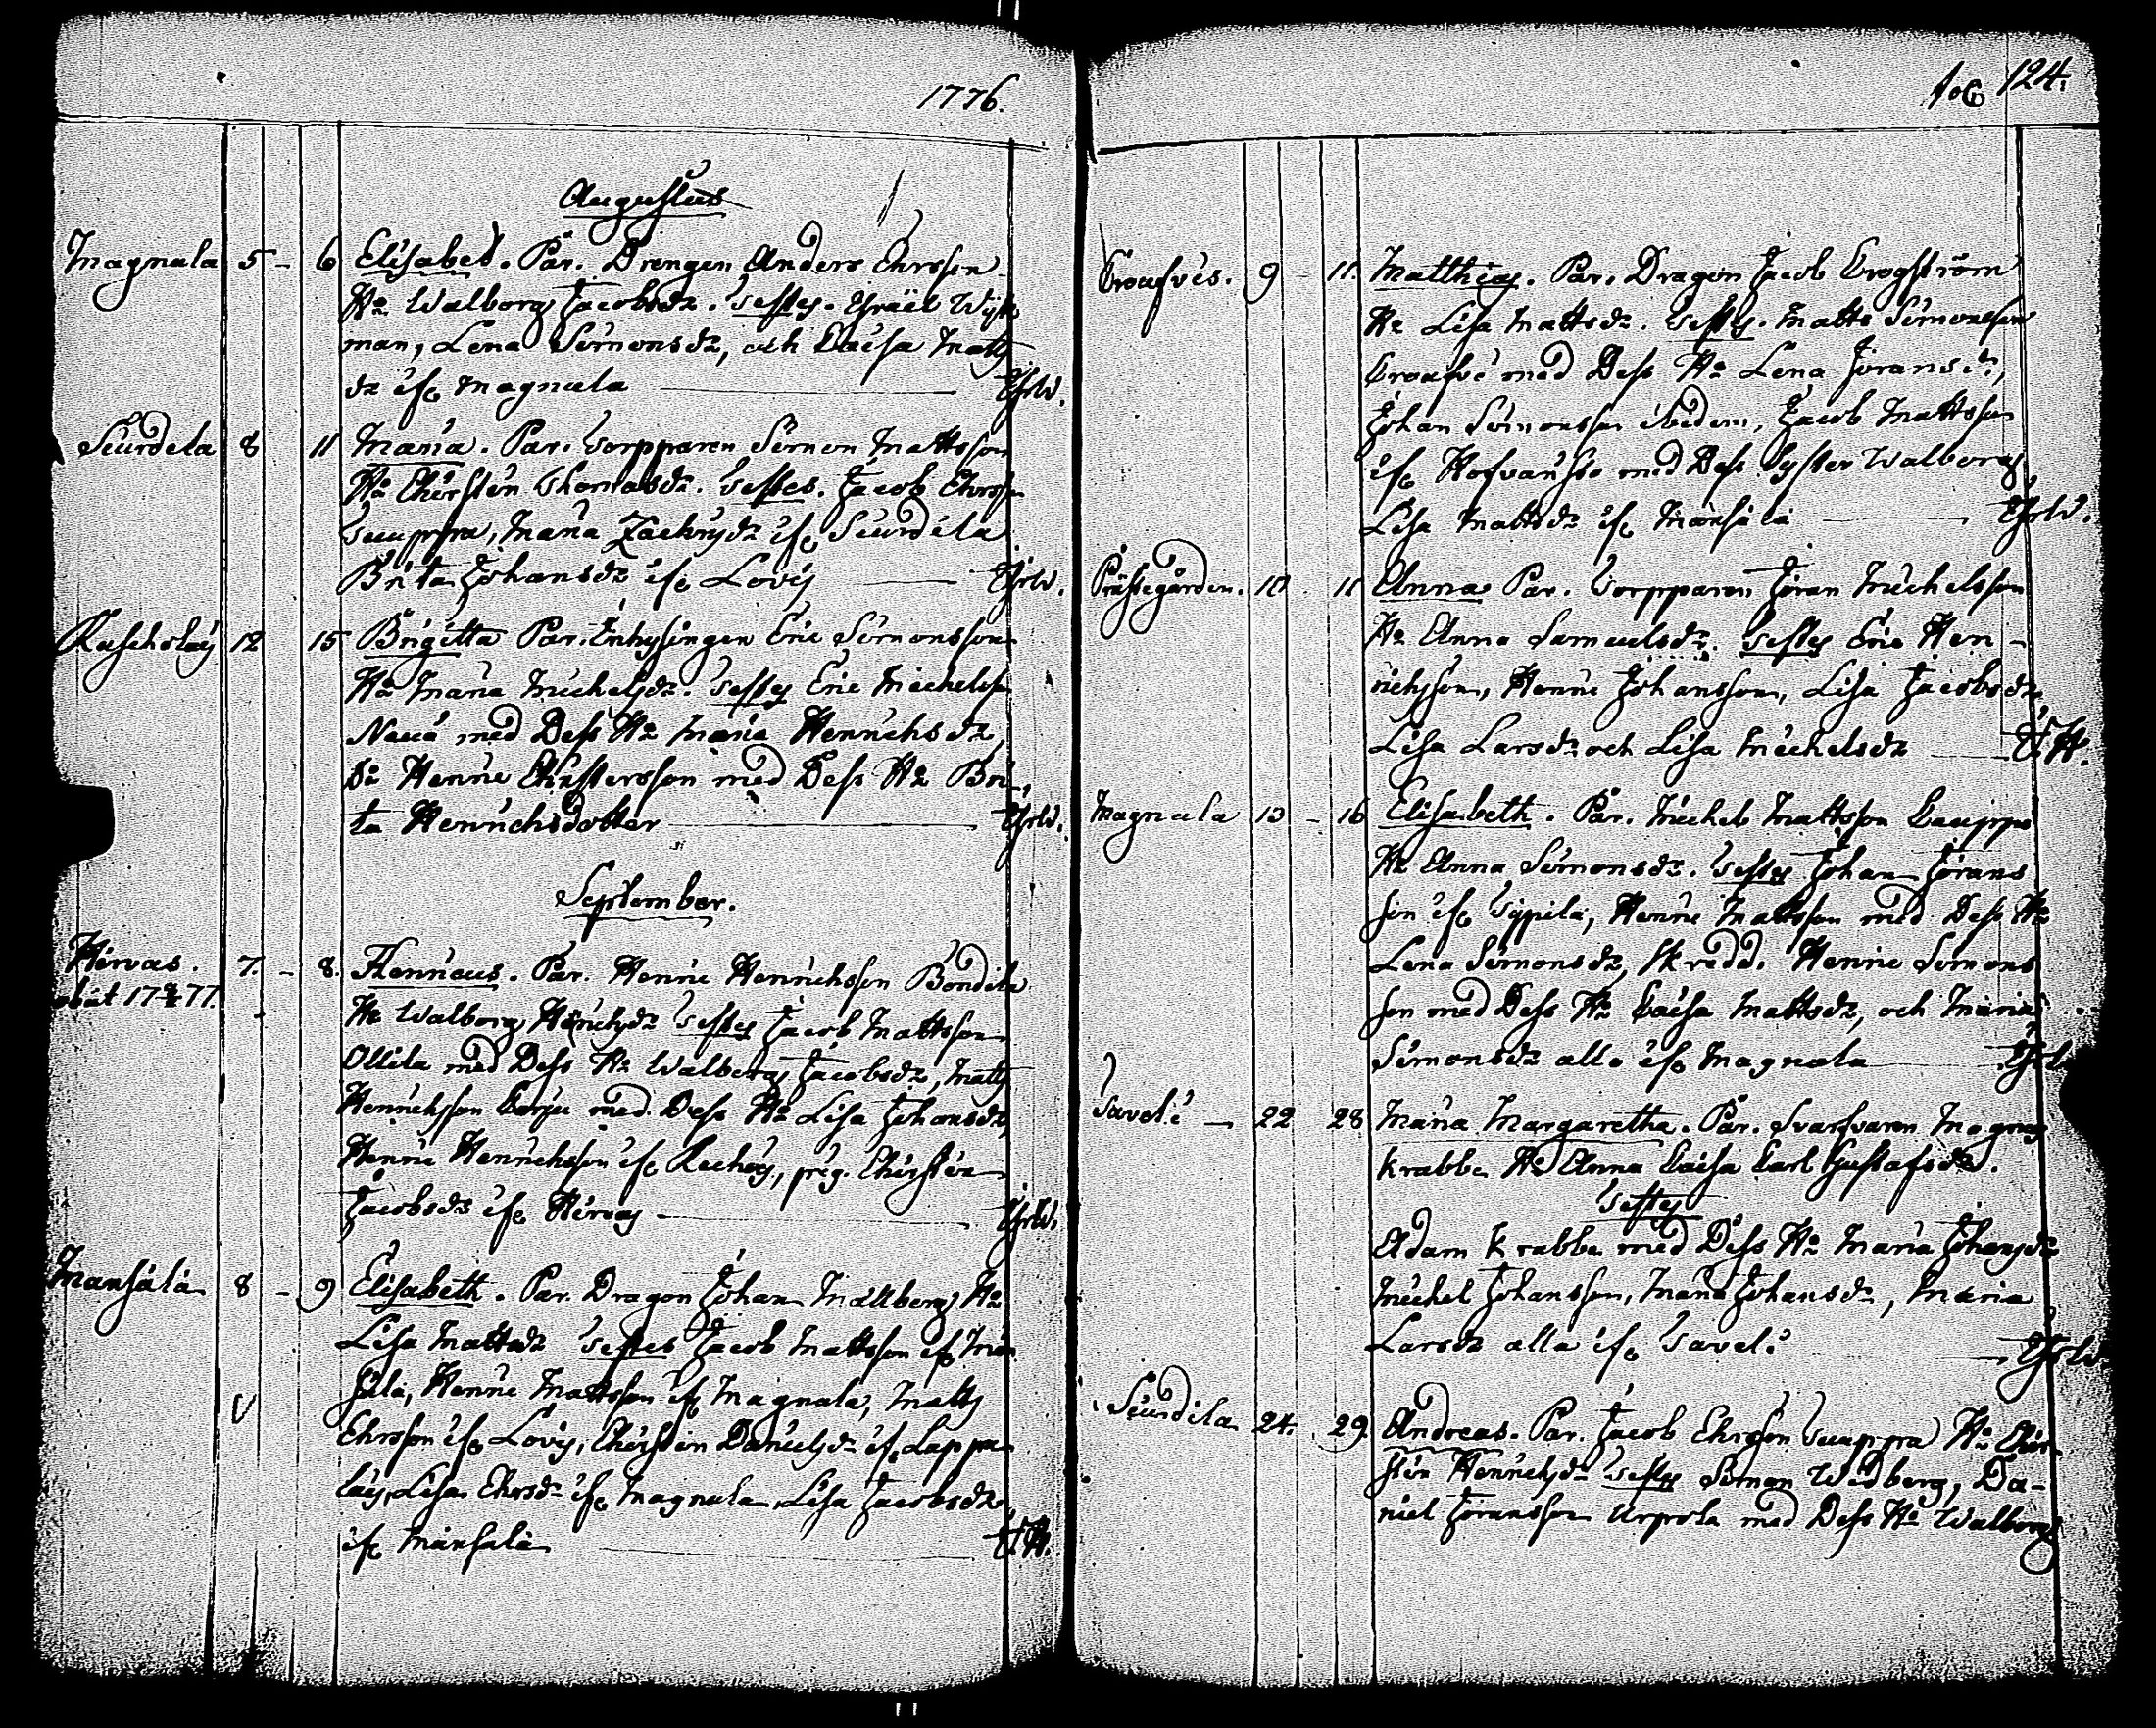 1776.
Augustus
Magnula 5 - 6 Elisabet. Par. Drengen Anders Ehrsson
Hu Walborg Jacobsdr. Testes. Israël Wijk
man, Lena Simonsdr, och Caisa Matts
dr ifr. Magnula
Siurdela 8 11 Maria. Par. Torpparen Simon Mattsson
Hu Christin Thomasdr. Testes. Jacob Ehrsson
Suuppa, Maria Zachrisdr ifr. Siurdela
Brita Johansdr ifr. Lovis
12 15 Brigitta Par. Inhysingen Eric Simonsson
Hu Maria Michelsdr. Testes Eric Michelss
med Dess Hu Maria Henrichsdr,
Dr Henric Christersson med Dess Hu Bri
ta Henrichsdotter
September.
Hirvas. 7. - 8. Henricus. Par. Henric Henrichsson Bondila
obiit 17 77. Hu Walborg Testes Jacob Mattsson
Ollila med Dess Hu Walborg Jacobsdr, Matts
Henrichsson med Dess Hu Lisa Johansdr,
Henric Henrichsson ifr. pig. Christin
Jacobsdr ifr. Hirvas
Mansála 8 - 9 Elisabeth. Par. Dragon Johan Mattberg Hu
Lisa Mattsdr Testes Jacob Mattsson ifr. Man
sála, Henric Mattsson ifr. Magnula, Matts
Ehrsson ifr. Lovis, Christin Danielsdr ifr. Lappa
Lisa Ehrsdr ifr. Magnula, Lisa Jacobsdr
ifr. Mansála
106 124.
9 - 11. Matthias. Par. Dragon Jacob Krogström
Hu Lisa Mattsdr. Testes. Matts Simonsson
med Dess Hu Lena Jöransdr,
Johan Simonsson ibidem, Jacob Mattsson
ifr. med Dess Syster Walborg
Lisa Mattsdr ifr. Mansála
Prästegården. 10. 11 Anna Par. Torpparen Jöran Michelsson
Hu Anna Samuelsdr. Testes Eric Hen-
richsson, Henric Johansson, Lisa Jacobsdr
Lisa Larsdr och Lisa Michelsdr
Magnula 13 - 16 Elisabeth. Par. Michel Mattsson Kauppi
Hu Anna Simonsdr. Testes Johan Jörans
son ifr. Sippila, Henric Mattsson med Dess Hu
Lena Simonsdr, Skredd. Henric Simons
son med Dess Hu Caisa Mattsdr, och Maria
Simonsdr alla ifr. Magnula
Savela - 22 28 Maria Margaretha. Par. Svarfvaren Magnus
Krabbe Hu Anna Caisa Carl Gustafsdr.
Testes
Adam Krabbe med Dess Hu Maria Johansdr
Michel Johansson, Maria Johansdr, Maria
Larsdr alla ifr. Savela
Siurdila 24. 29. Andreas. Par. Jacob Ehrsson Suuppa Hu Chri
stin Henrichsdr Testes Simon Widberg, Da-
niel Jöransson Arpola med Dess Hu Walborg